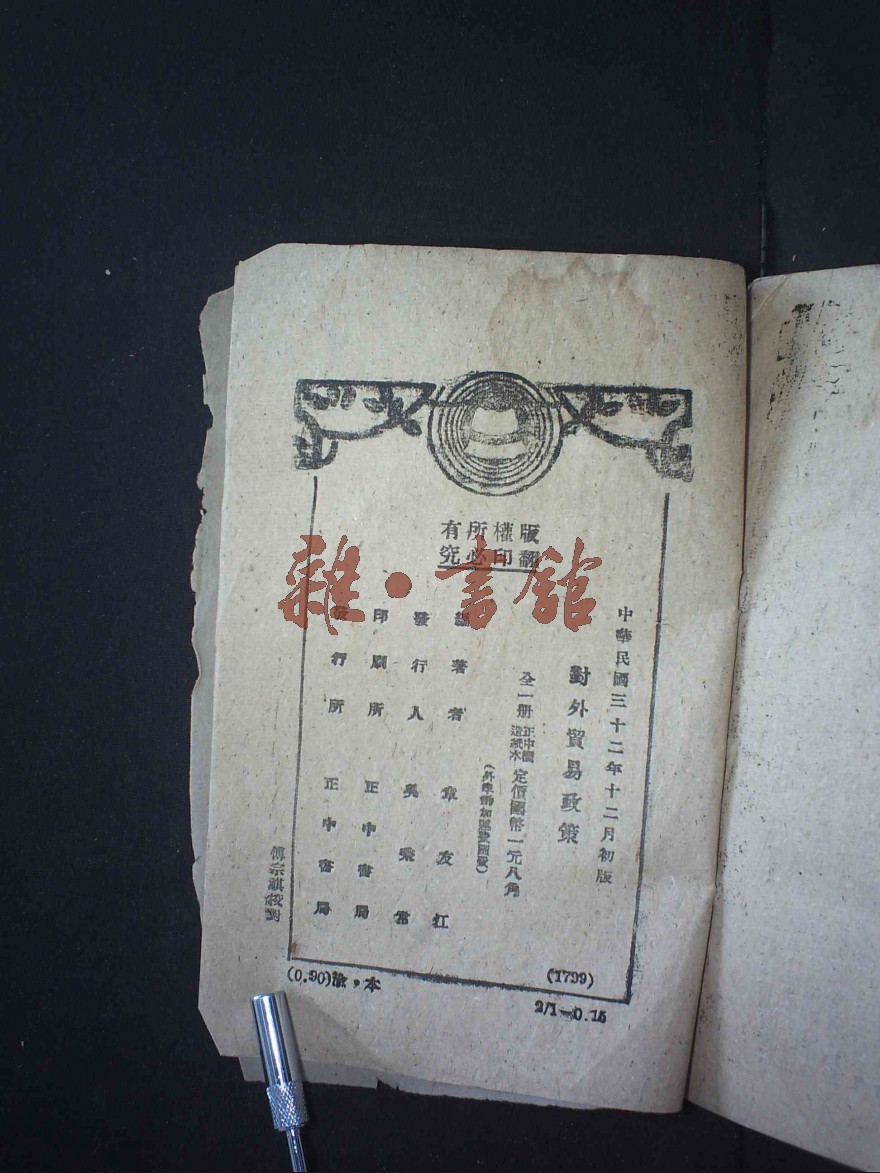 版權所有
翻印必究
雜·書館
中華民國三十二年十二月初版
對外貿易政策
全一册 正中機造紙本 定價國幣一元八角
(外埠酌加運費匯費)
編著者 章友江
發行人 吳秉常
印刷所 正中書局
發行所 正中書局
傅宗祺校對
(1799)
(0.90)渝·本
2/1—0.15